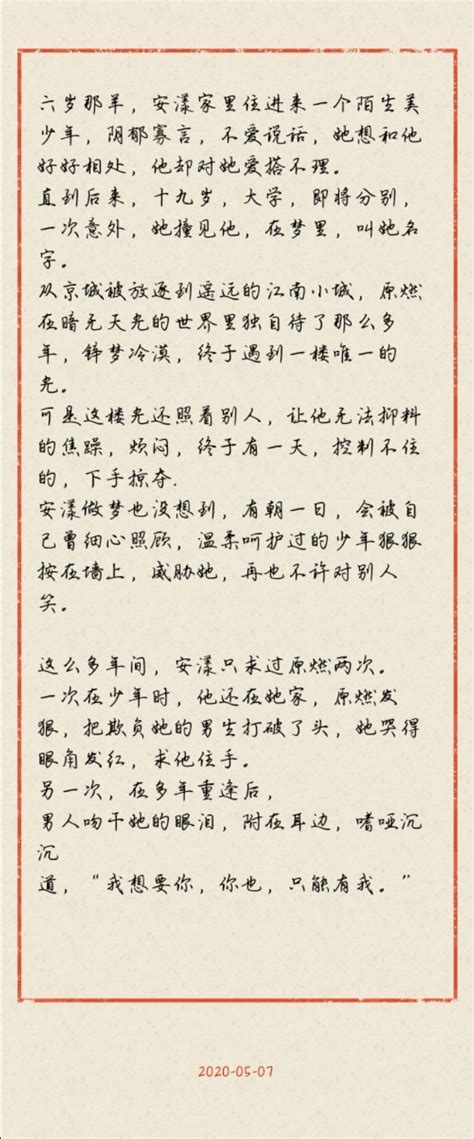 六岁那羊，安漾家里住进来一个陌生美
少年，阴郁寡言，不爱说话，她想和他
好好相处，他却对她爱搭不理。
直到后来，十九岁，大学，即将分别，
一次意外，她撞见他，在梦里，叫她名
字。
从京城被放逐到遥远的江南小城，原燃
在暗无天光的世界里独自待了那么多
年，锌梦冷漠，终于遇到一楼唯一的
光。
可是这楼光还照着别人，让他无法抑料
的焦躁，烦闷，终于有一天，控制不住
的，下手掠夺.
安漾做梦也没想到，有朝一日，会被自
己曾细心照顾，温柔呵护过的少年狠狠
按在墙上，威胁她，再也不许对别人
笑。
这么多年间，安漾只求过原燃两次。
一次在少年时，他还在她家，原燃发
狠，把欺负她的男生打破了头，她哭得
眼角发红，求他住手。
另一次，在多年重逢后，
男人吻干她的眼泪，附在耳边，嗜哑沉
沉
道，“我想要你，你也，只能有我。”
2020-05-07